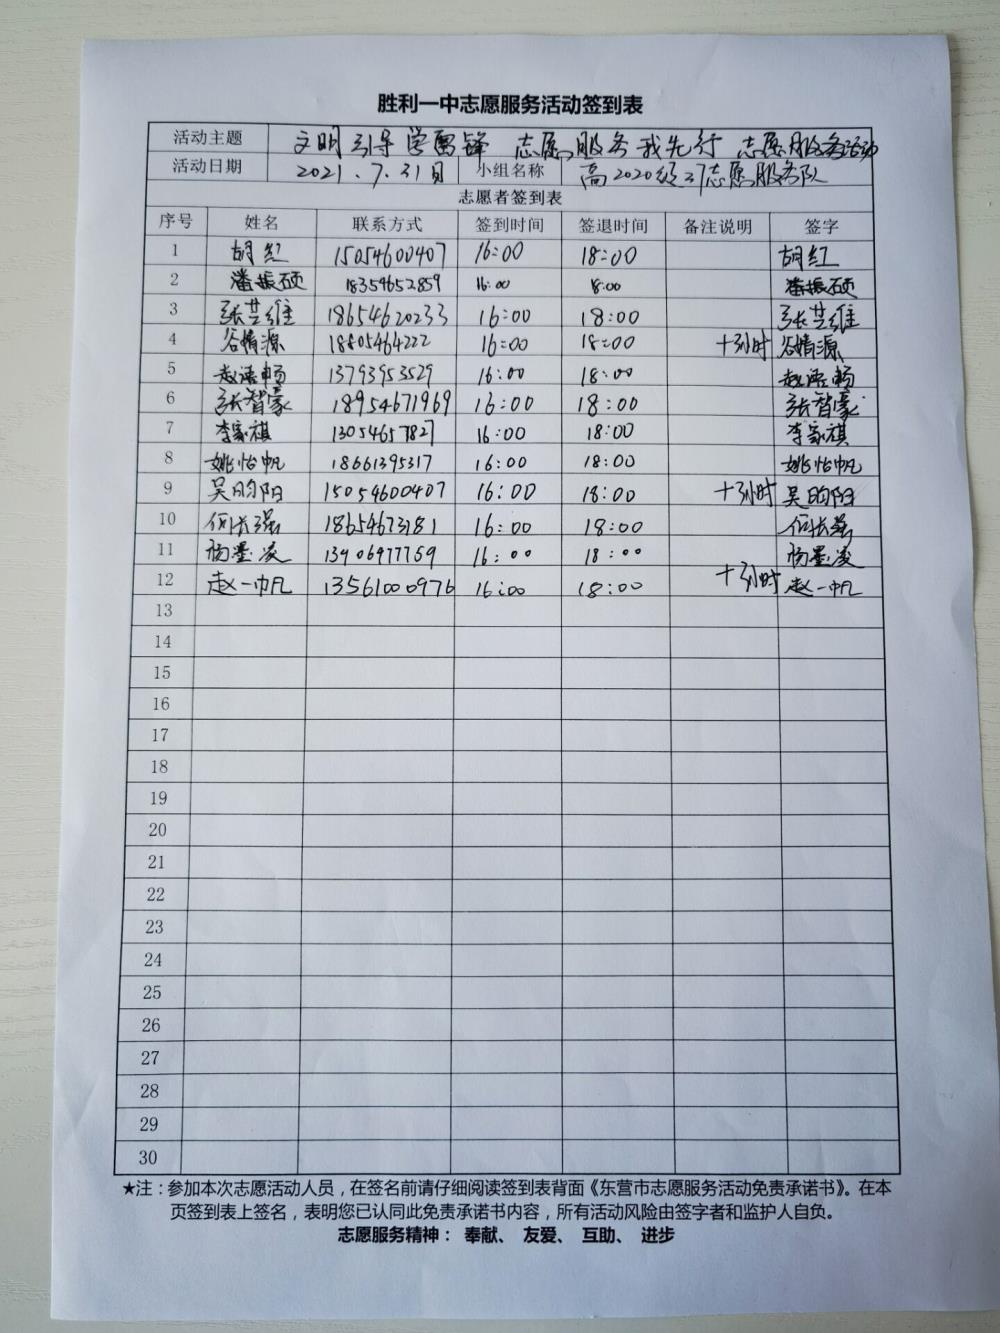 胜利一中志愿服务活动签到表
活动主题 文明引导学雷锋 志愿服务我先行 志愿服务活动
活动日期 2021.7.31日 小组名称 高2020级 志愿服务队
志愿者签到表
序号 姓名 联系方式 签到时间 签退时间 备注说明 签字
1 胡红 15054600407 16:00 18:00 胡红
2 潘振硕 18354652859 16:00 18:00 潘振硕
3 张芸维 18654620233 16:00 18:00 张芸维
4 谷情源 18805464222 16:00 18:00 +3小时 谷情源
5 赵语畅 13793953529 16:00 18:00 赵语畅
6 张智豪 18954671969 16:00 18:00 张智豪
7 李家祺 13054657827 16:00 18:00 李家祺
8 姚怡帆 18661395317 16:00 18:00 姚怡帆
9 吴昀阳 15054600407 16:00 18:00 +3小时 吴昀阳
10 何长磊 18654673181 16:00 18:00 何长磊
11 杨墨凌 13406977759 16:00 18:00 杨墨凌
12 赵一帆 13561000976 16:00 18:00 +3小时 赵一帆
13
14
15
16
17
18
19
20
21
22
23
24
25
26
27
28
29
30
★注：参加本次志愿活动人员，在签名前请仔细阅读签到表背面《东营市志愿服务活动免责承诺书》。在本
页签到表上签名，表明您已认同此免责承诺书内容，所有活动风险由签字者和监护人自负。
志愿服务精神： 奉献、 友爱、 互助、 进步